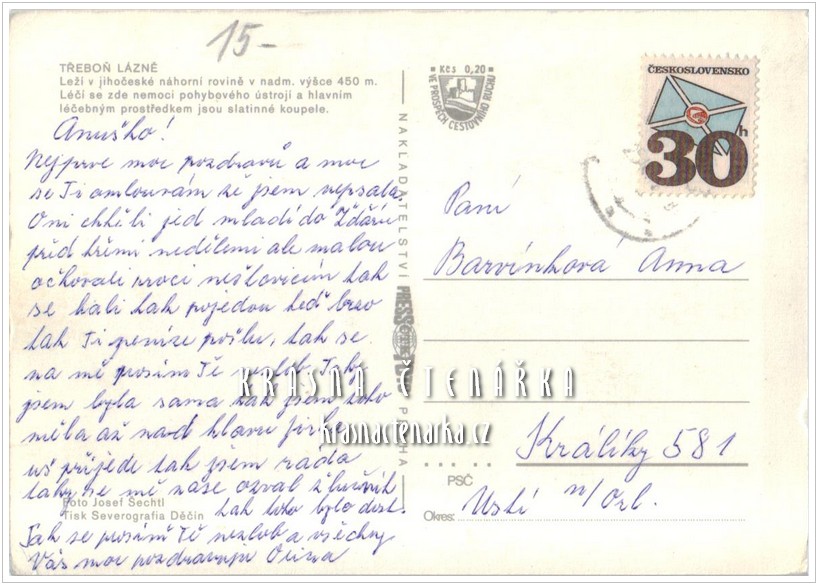 15-
TŘEBOŇ LÁZNĚ
Leží v jihočeské náhorní rovině v nadm. výšce 450 m.
Léčí se zde nemoci pohybového ústrojí a hlavním
léčebným prostředkem jsou slatinné koupele.
Anuško!
Nejprve moc pozdravů a moc
se Ti omlouvám že jsem nepsala.
Oni chtěli jed mladí do Žďáru
před třemi nedělemi ale malou
očkovali proci neštovicím tak
se báli tak pojedou teď brzo
tak Ti peníze pošlu, tak se
na mě prosím Tě nezlob. Taky
jsem byla sama tak jsem toho
měla až nad hlavu Jirka
uš přijede tak jsem ráda
taky se mě zase ozval žlučník
tak toho bylo dost.
Tak se prosím Tě nezlob a všechny
Vás moc pozdravuje
Foto Josef Šechtl
Tisk Severografia Děčín
NAKLADATELSTVÍ PRESSFOTO PRAHA
Kčs 0,20
VE PROSPĚCH CESTOVNÍHO RUCHU
ČESKOSLOVENSKO
30h
Paní
Barvínková Anna
Králíky 581
PSČ
Okres: Ustí n/Orl.
KRÁSNÁ ČTENÁŘKA
krasnactenarka.cz